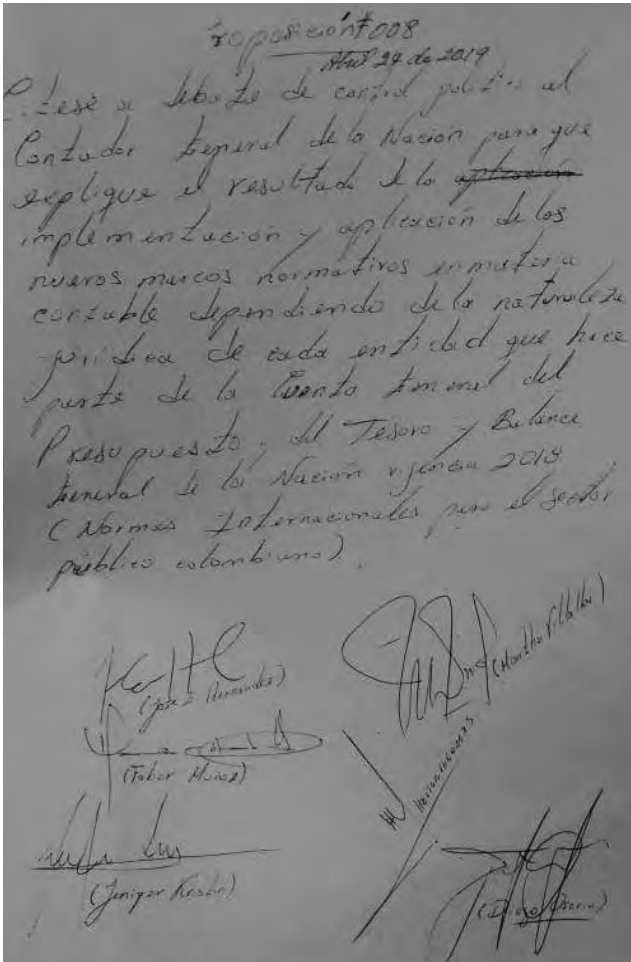 roposición #008
Abril 24 de 2019
Cítese a debate de control político al
Contador General de la Nación para que
explique el resultado de la aplicación
implementación y aplicación de los
nuevos marcos normativos en materia
contable dependiendo de la naturaleza
jurídica de cada entidad que hace
parte de la Cuenta General del
Presupuesto, del Tesoro y Balance
General de la Nación vigencia 2018
(Normas Internacionales para el sector
público colombiano).
(Martha Villalba)
(José E. Hernández)
(Faber Muñoz)
(Jenifer Kristin)
(Diego Osorio)